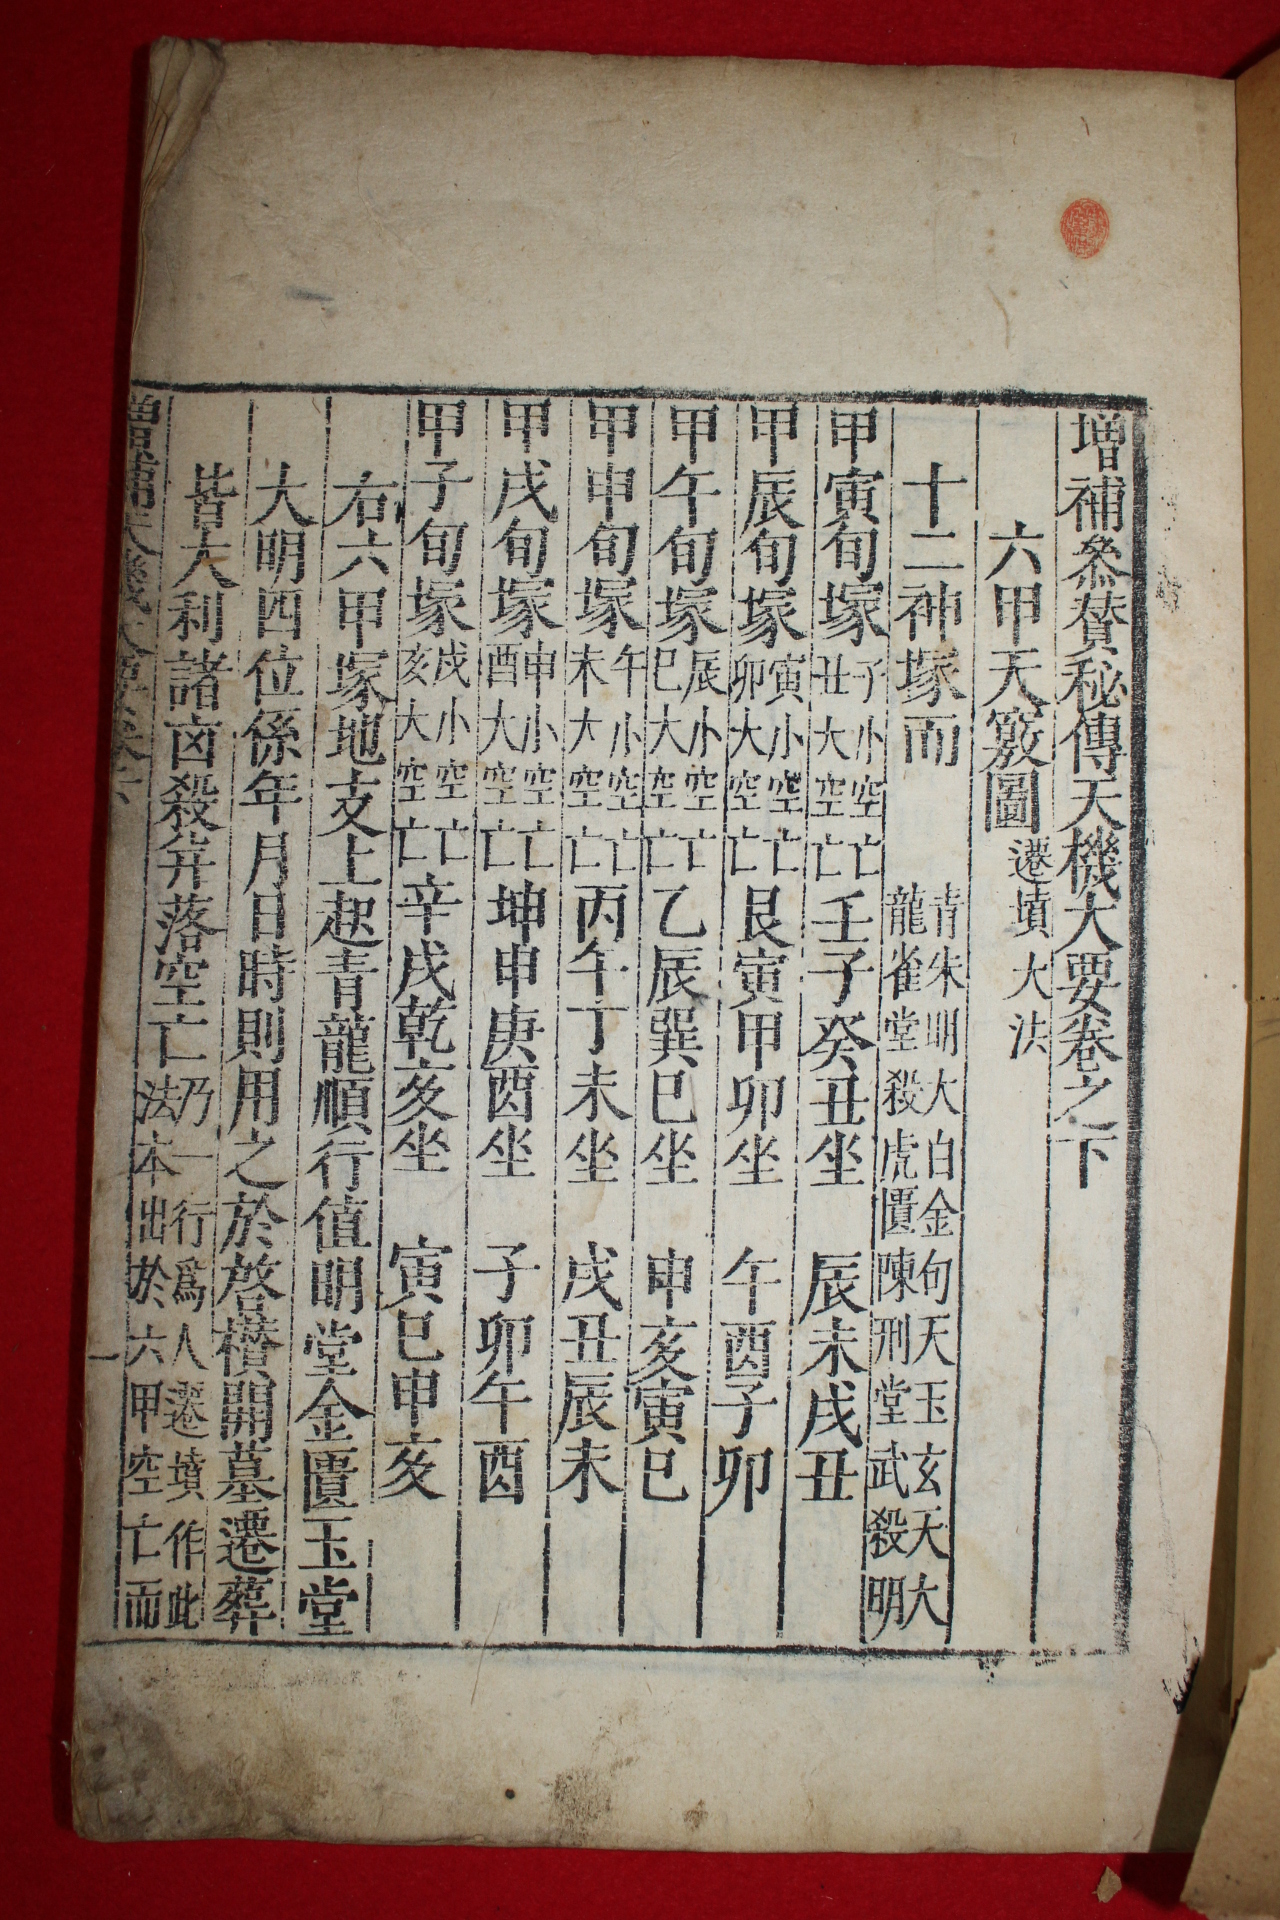 增補叅賛秘傳天機大要卷之下
六甲天竅圖 遷墳大法
十二神塚而 青朱明大白金句天玉玄天大 龍雀堂殺虎匱陳刑堂武殺明
甲寅旬塚 子小空亡 丑大空亡 壬子癸丑坐 辰未戌丑
甲辰旬塚 寅小空亡 卯大空亡 艮寅甲卯坐 午酉子卯
甲午旬塚 辰小空亡 巳大空亡 乙辰巽巳坐 申亥寅巳
甲申旬塚 午小空亡 未大空亡 丙午丁未坐 戌丑辰未
甲戌旬塚 申小空亡 酉大空亡 坤申庚酉坐 子卯午酉
甲子旬塚 戌小空亡 亥大空亡 辛戌乾亥坐 寅巳申亥
右六甲塚地支上起青龍順行值明堂金匱玉堂
大明四位係年月日時則用之於啓欑開墓遷葬
皆大利諸㐫殺幷落空亡 乃一行爲人遷墳作此 法本出於六甲空亡而
增補天機大要卷下
一